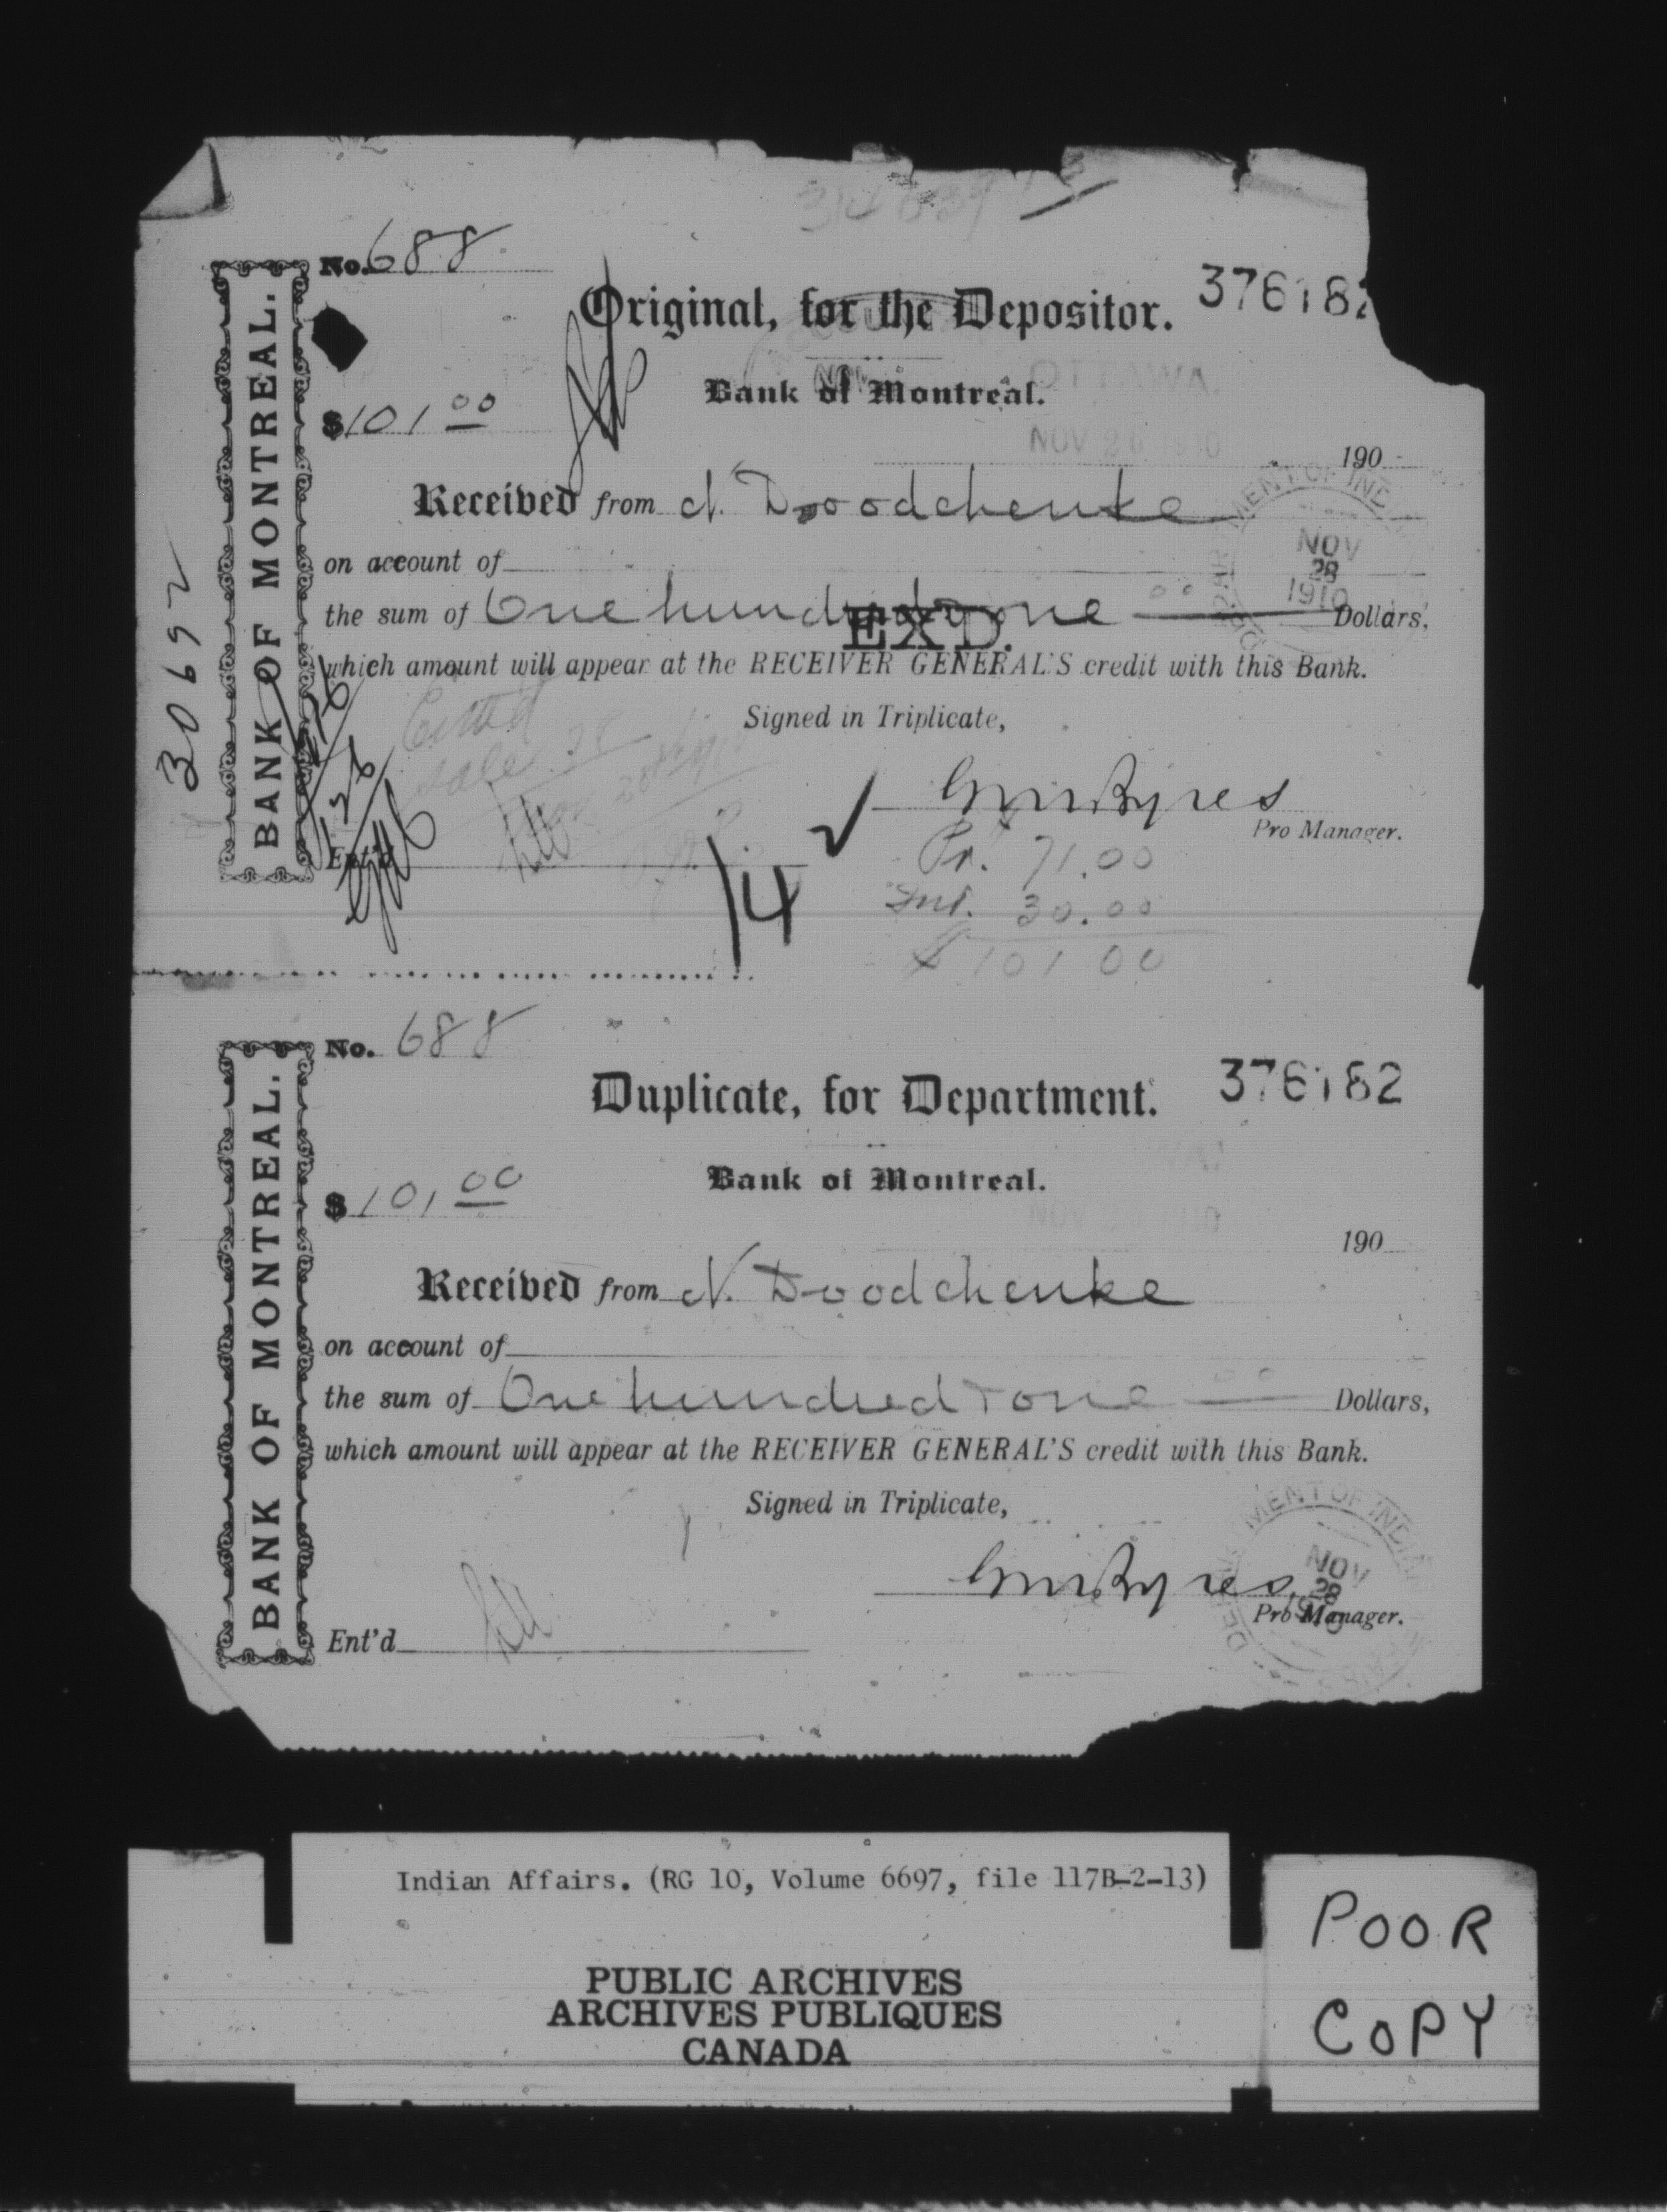 No. 688
Original, for the Depositor.
37618
BANK OF MONTREAL.
Bank of Montreal.
OTTAWA.
$101 00
NOV 26 1910
190
Received from N. Doodchenke
MENT OF IND
NOV
28
1910
on account of
the sum of One hundred & one 00 Dollars,
EX'D.
which amount will appear at the RECEIVER GENERAL'S credit with this Bank.
30692
Signed in Triplicate,
Pro Manager.
Ent'd
Pr. 71.00
Int. 30.00
$101 00
14
No. 688
Duplicate, for Department.
376182
BANK OF MONTREAL.
Bank of Montreal.
$101 00
NOV
190
Received from N. Doodchenke
on account of
the sum of One hundred & one 00 Dollars,
which amount will appear at the RECEIVER GENERAL'S credit with this Bank.
Signed in Triplicate,
MENT OF INDI
NOV
28
Pro Manager.
Ent'd
Indian Affairs. (RG 10, Volume 6697, file 117B-2-13)
PUBLIC ARCHIVES
ARCHIVES PUBLIQUES
CANADA
POOR
COPY